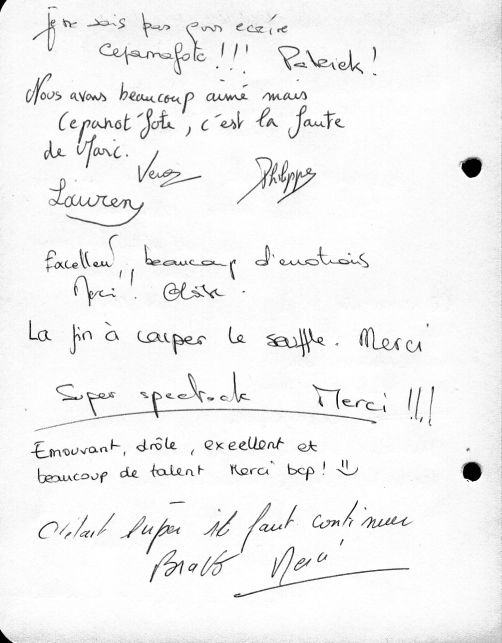 Je ne sais pas quoi écrire
Cepamafote !!! Patrick !
Nous avons beaucoup aimé mais
Cepanot'fote, c'est la faute
de Marc.
Philippe
Laurent
Excellent, beaucoup d'emotions
Merci !
La fin à couper le souffle. Merci
Super spectacle Merci !!!!
Emouvant, drôle, excellent et
beaucoup de talent Merci bcp !
C'était super il faut continuer
Bravo Merci